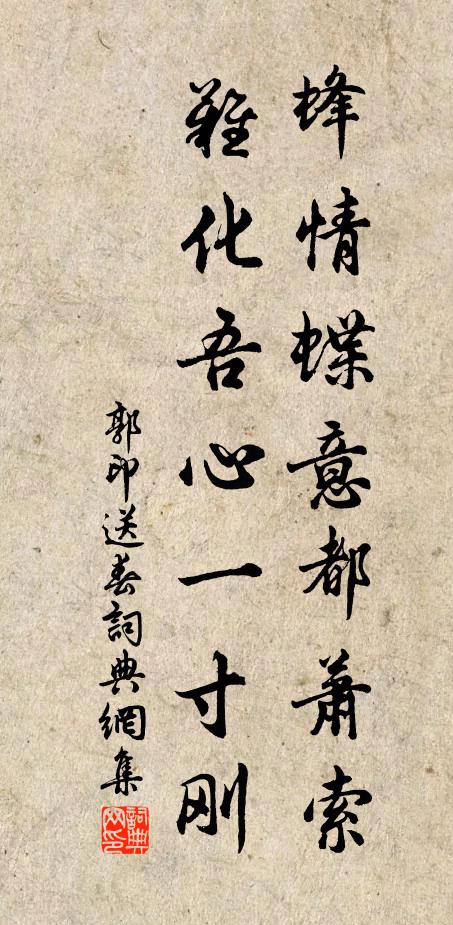 蜂情蝶意都蕭索
難化吾心一寸剛
郭印送春詞典網集
詞典网印